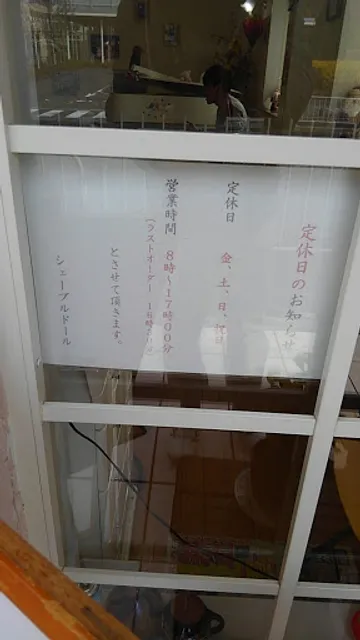 定休日のお知らせ
定休日　金、土、日、祝日
営業時間　8時～17時00分
（ラストオーダー　16時30分）
とさせて頂きます。
シェーブルドール